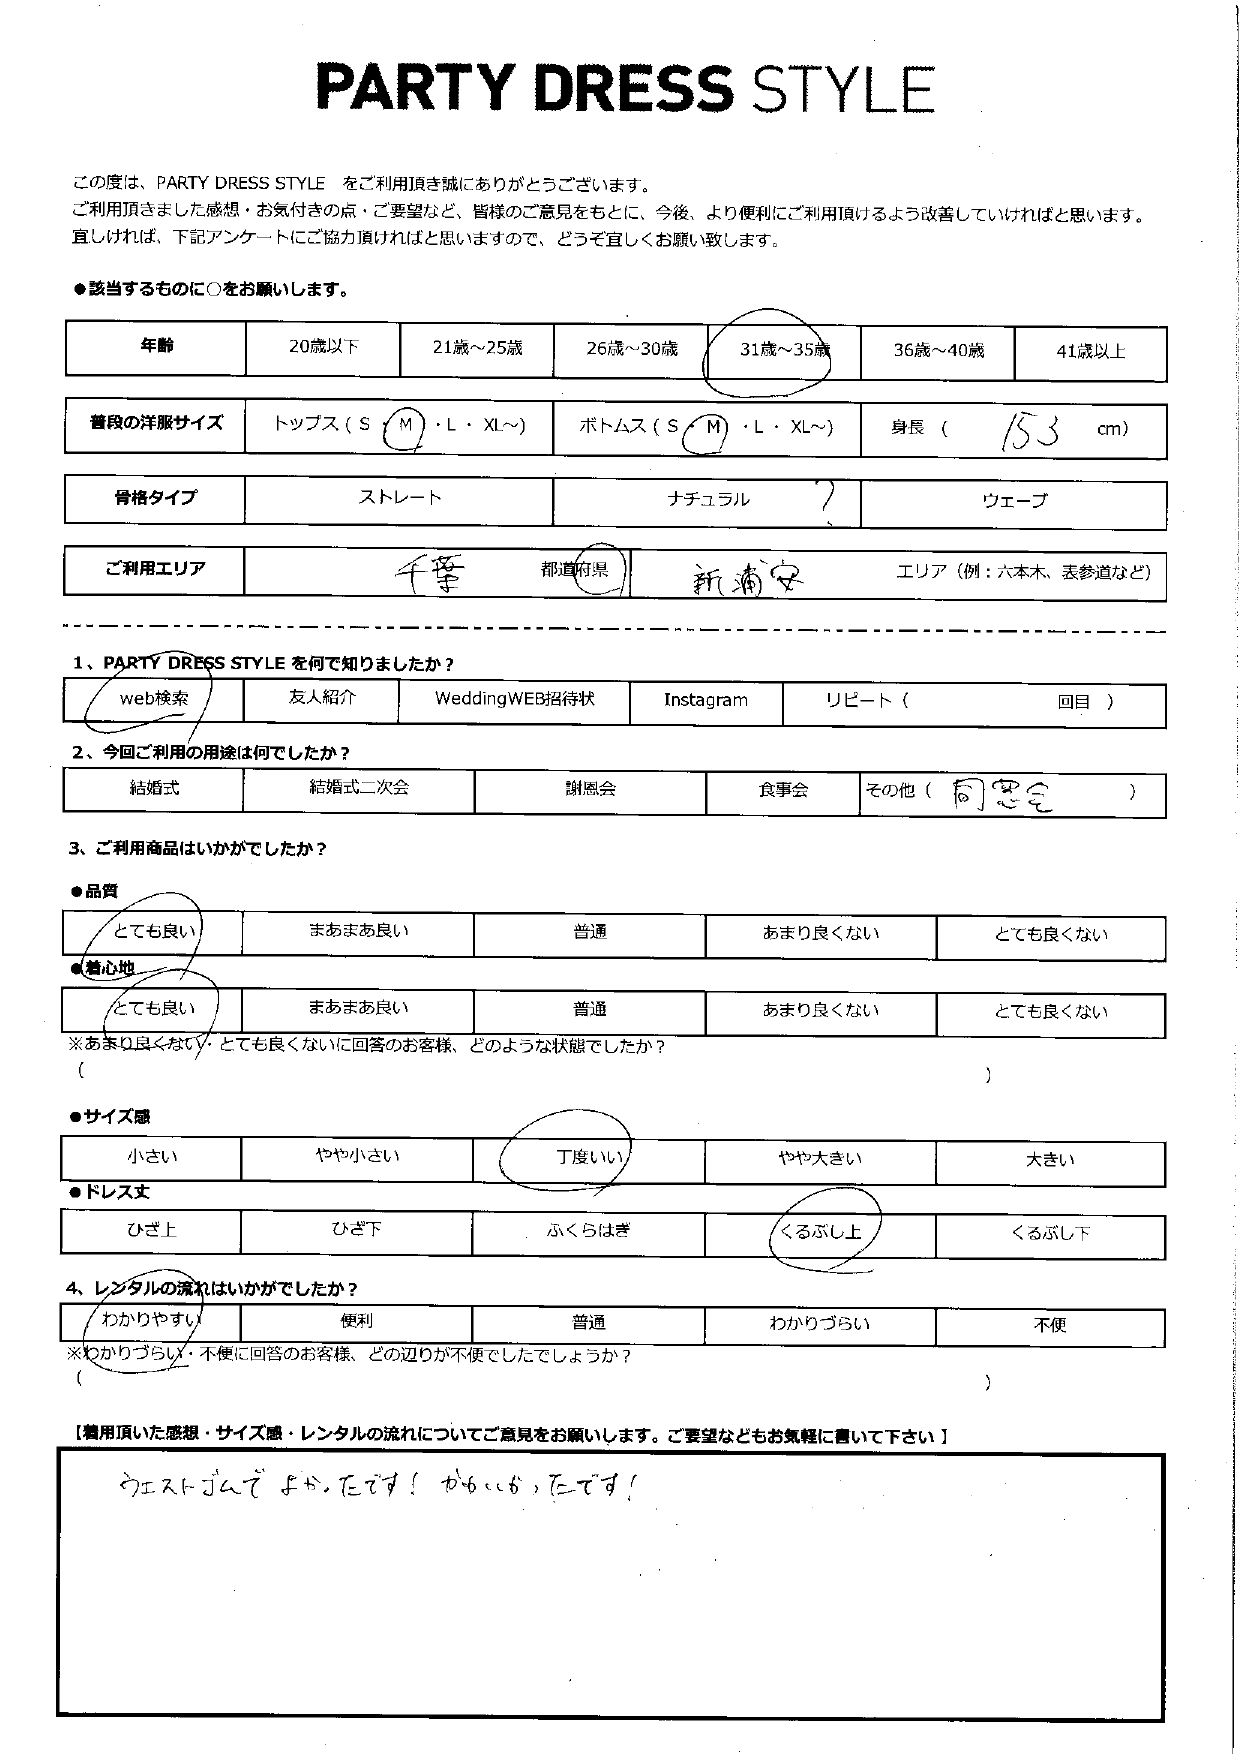 PARTY DRESS STYLE
この度は、PARTY DRESS STYLE をご利用頂き誠にありがとうございます。
ご利用頂きました感想・お気付きの点・ご要望など、皆様のご意見をもとに、今後、より便利にご利用頂けるよう改善していければと思います。
宜しければ、下記アンケートにご協力頂ければと思いますので、どうぞ宜しくお願い致します。
●該当するものに○をお願いします。
年齢 20歳以下 21歳～25歳 26歳～30歳 31歳～35歳 36歳～40歳 41歳以上
普段の洋服サイズ トップス ( S ・ M ・L ・ XL～) ボトムス ( S ・ M ・L ・ XL～) 身長 ( 153 cm)
骨格タイプ ストレート ナチュラル ? ウェーブ
ご利用エリア 千葉 都道府県 新浦安 エリア（例：六本木、表参道など）
1、PARTY DRESS STYLE を何で知りましたか？
web検索 友人紹介 WeddingWEB招待状 Instagram リピート ( 回目 )
2、今回ご利用の用途は何でしたか？
結婚式 結婚式二次会 謝恩会 食事会 その他 ( 同窓会 )
3、ご利用商品はいかがでしたか？
●品質
とても良い まあまあ良い 普通 あまり良くない とても良くない
●着心地
とても良い まあまあ良い 普通 あまり良くない とても良くない
※あまり良くない・とても良くないに回答のお客様、どのような状態でしたか？
( )
●サイズ感
小さい やや小さい 丁度いい やや大きい 大きい
●ドレス丈
ひざ上 ひざ下 ふくらはぎ くるぶし上 くるぶし下
4、レンタルの流れはいかがでしたか？
わかりやすい 便利 普通 わかりづらい 不便
※わかりづらい・不便に回答のお客様、どの辺りが不便でしたでしょうか？
( )
【着用頂いた感想・サイズ感・レンタルの流れについてご意見をお願いします。ご要望などもお気軽に書いて下さい】
ウエストゴムで よかったです！ かわいかったです！